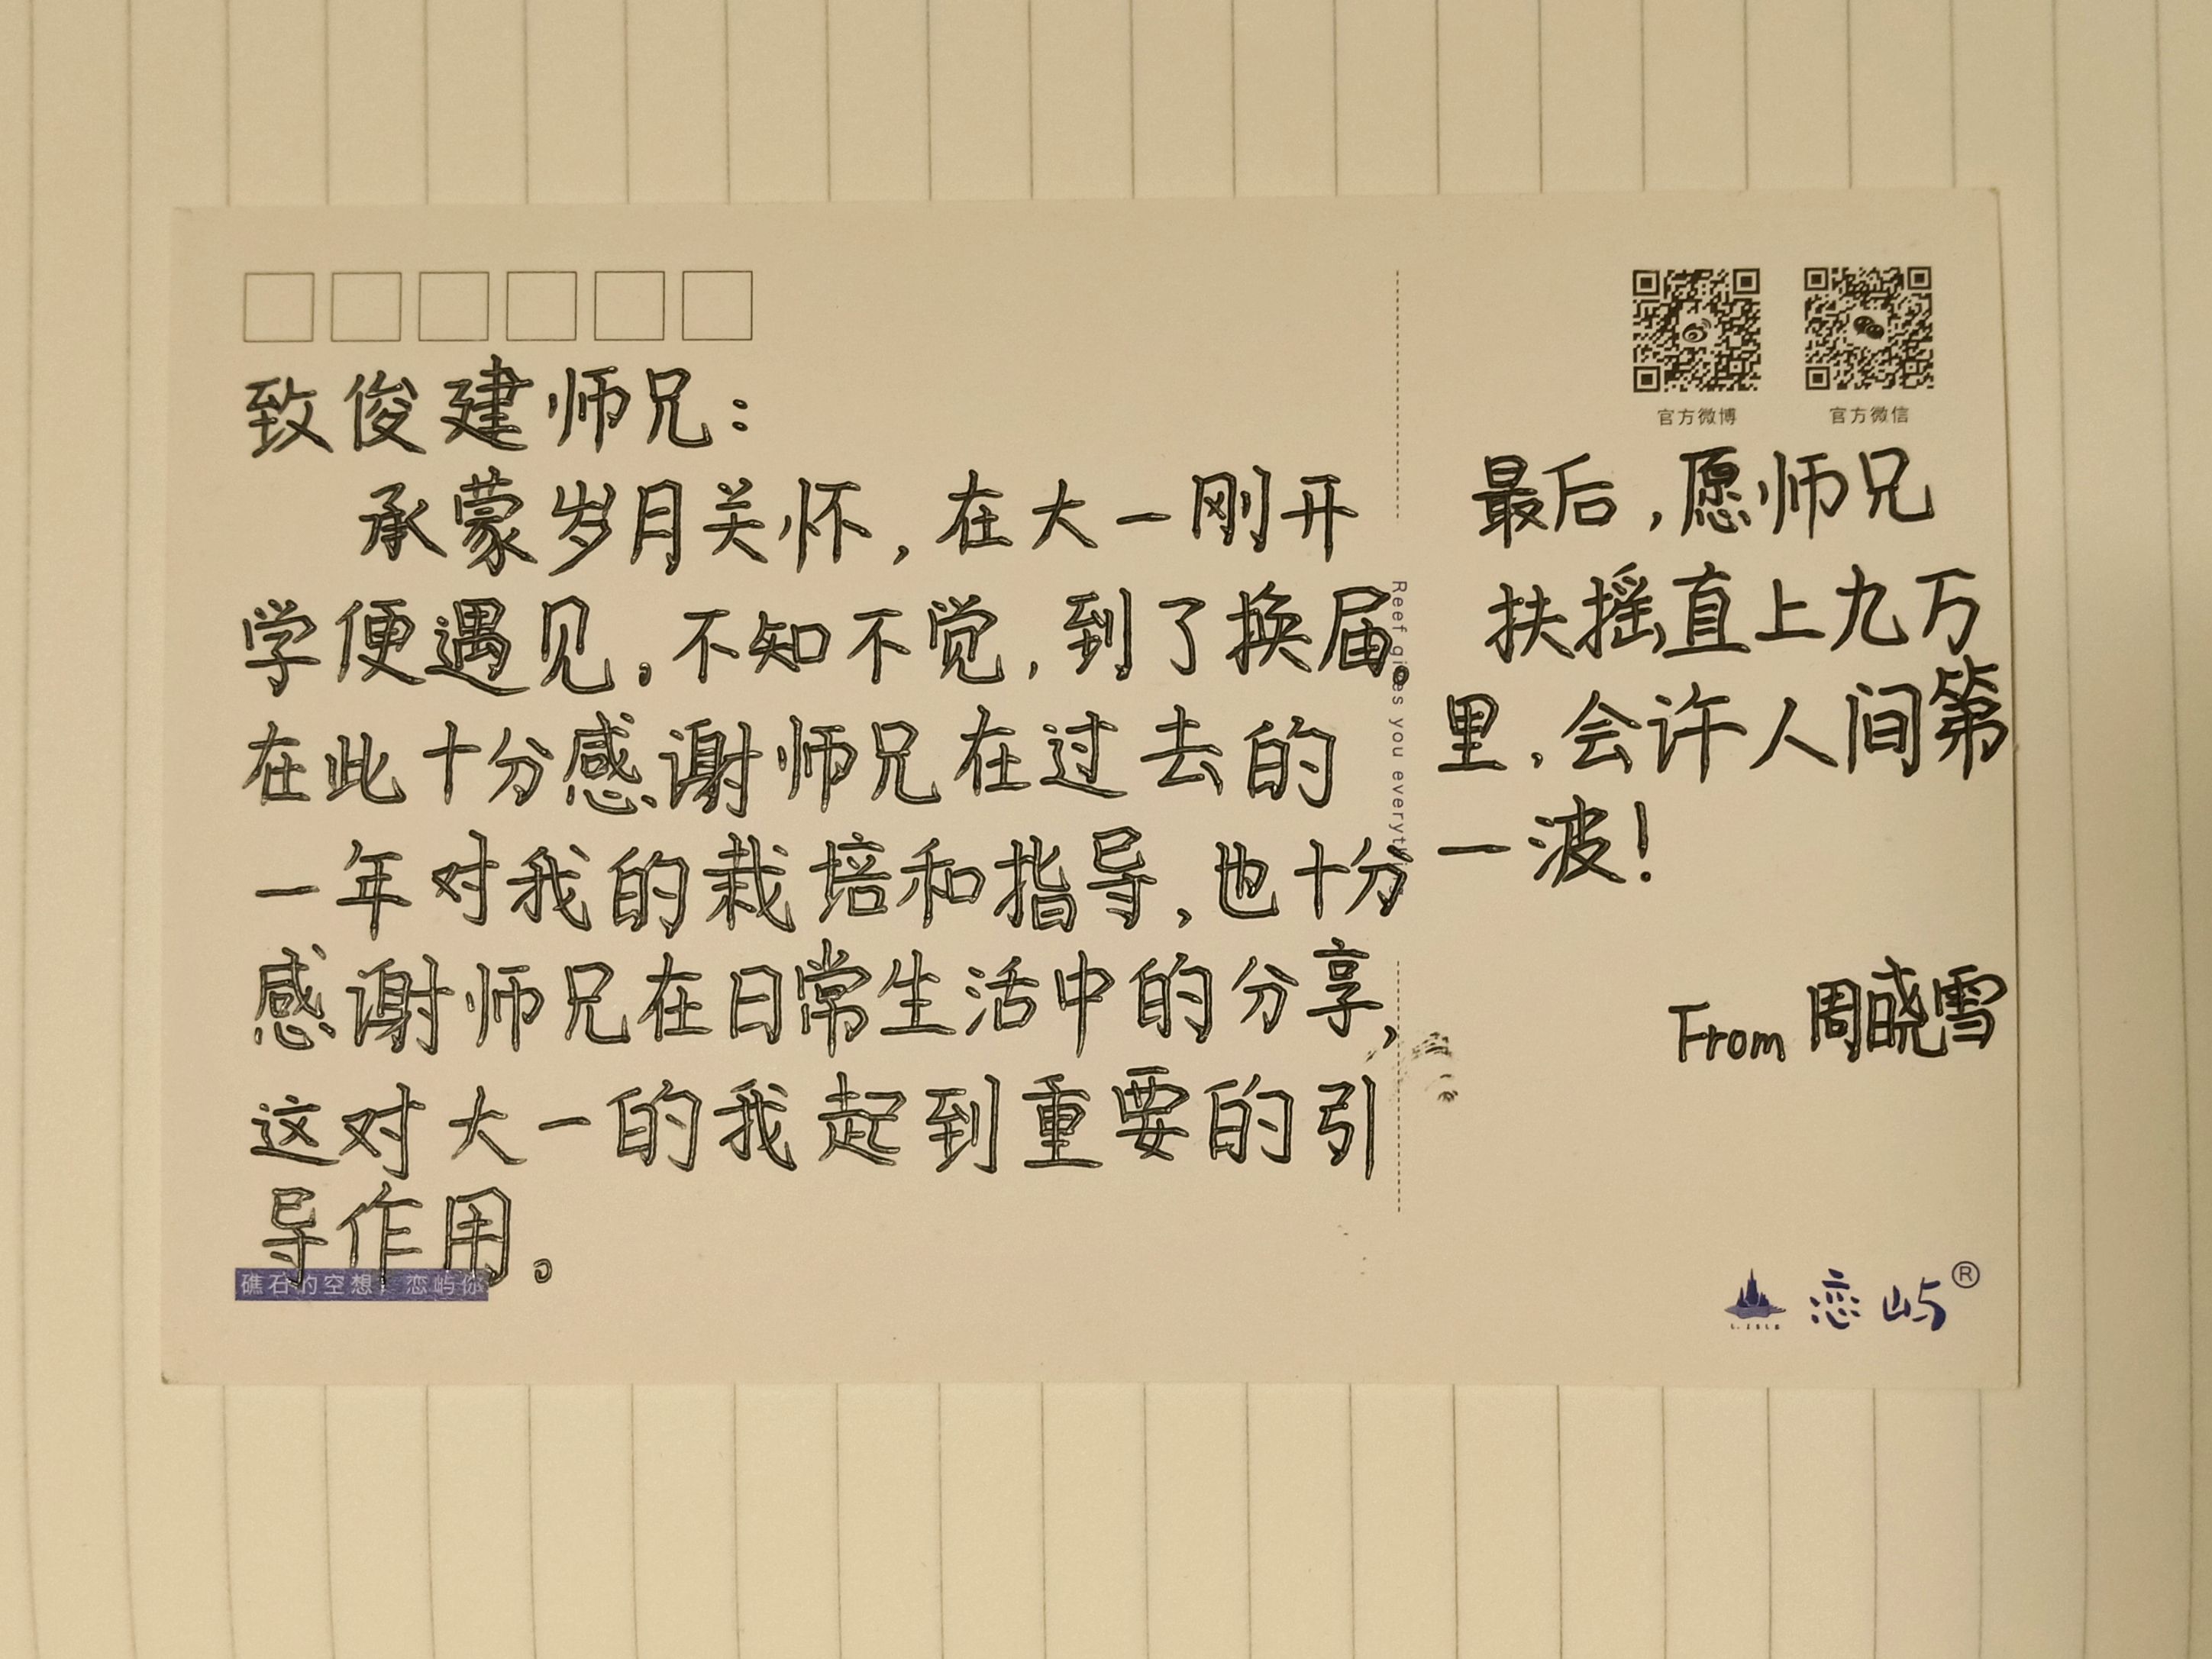 致俊建师兄：
承蒙岁月关怀，在大一刚开
学便遇见。不知不觉，到了换届。
在此十分感谢师兄在过去的
一年对我的栽培和指导，也十分
感谢师兄在日常生活中的分享，
这对大一的我起到重要的引
导作用。
礁石的空想，恋屿你
Reef gives you everything
官方微博
官方微信
最后，愿师兄
扶摇直上九万
里，会许人间第
一波！
From 周晓雪
恋屿®